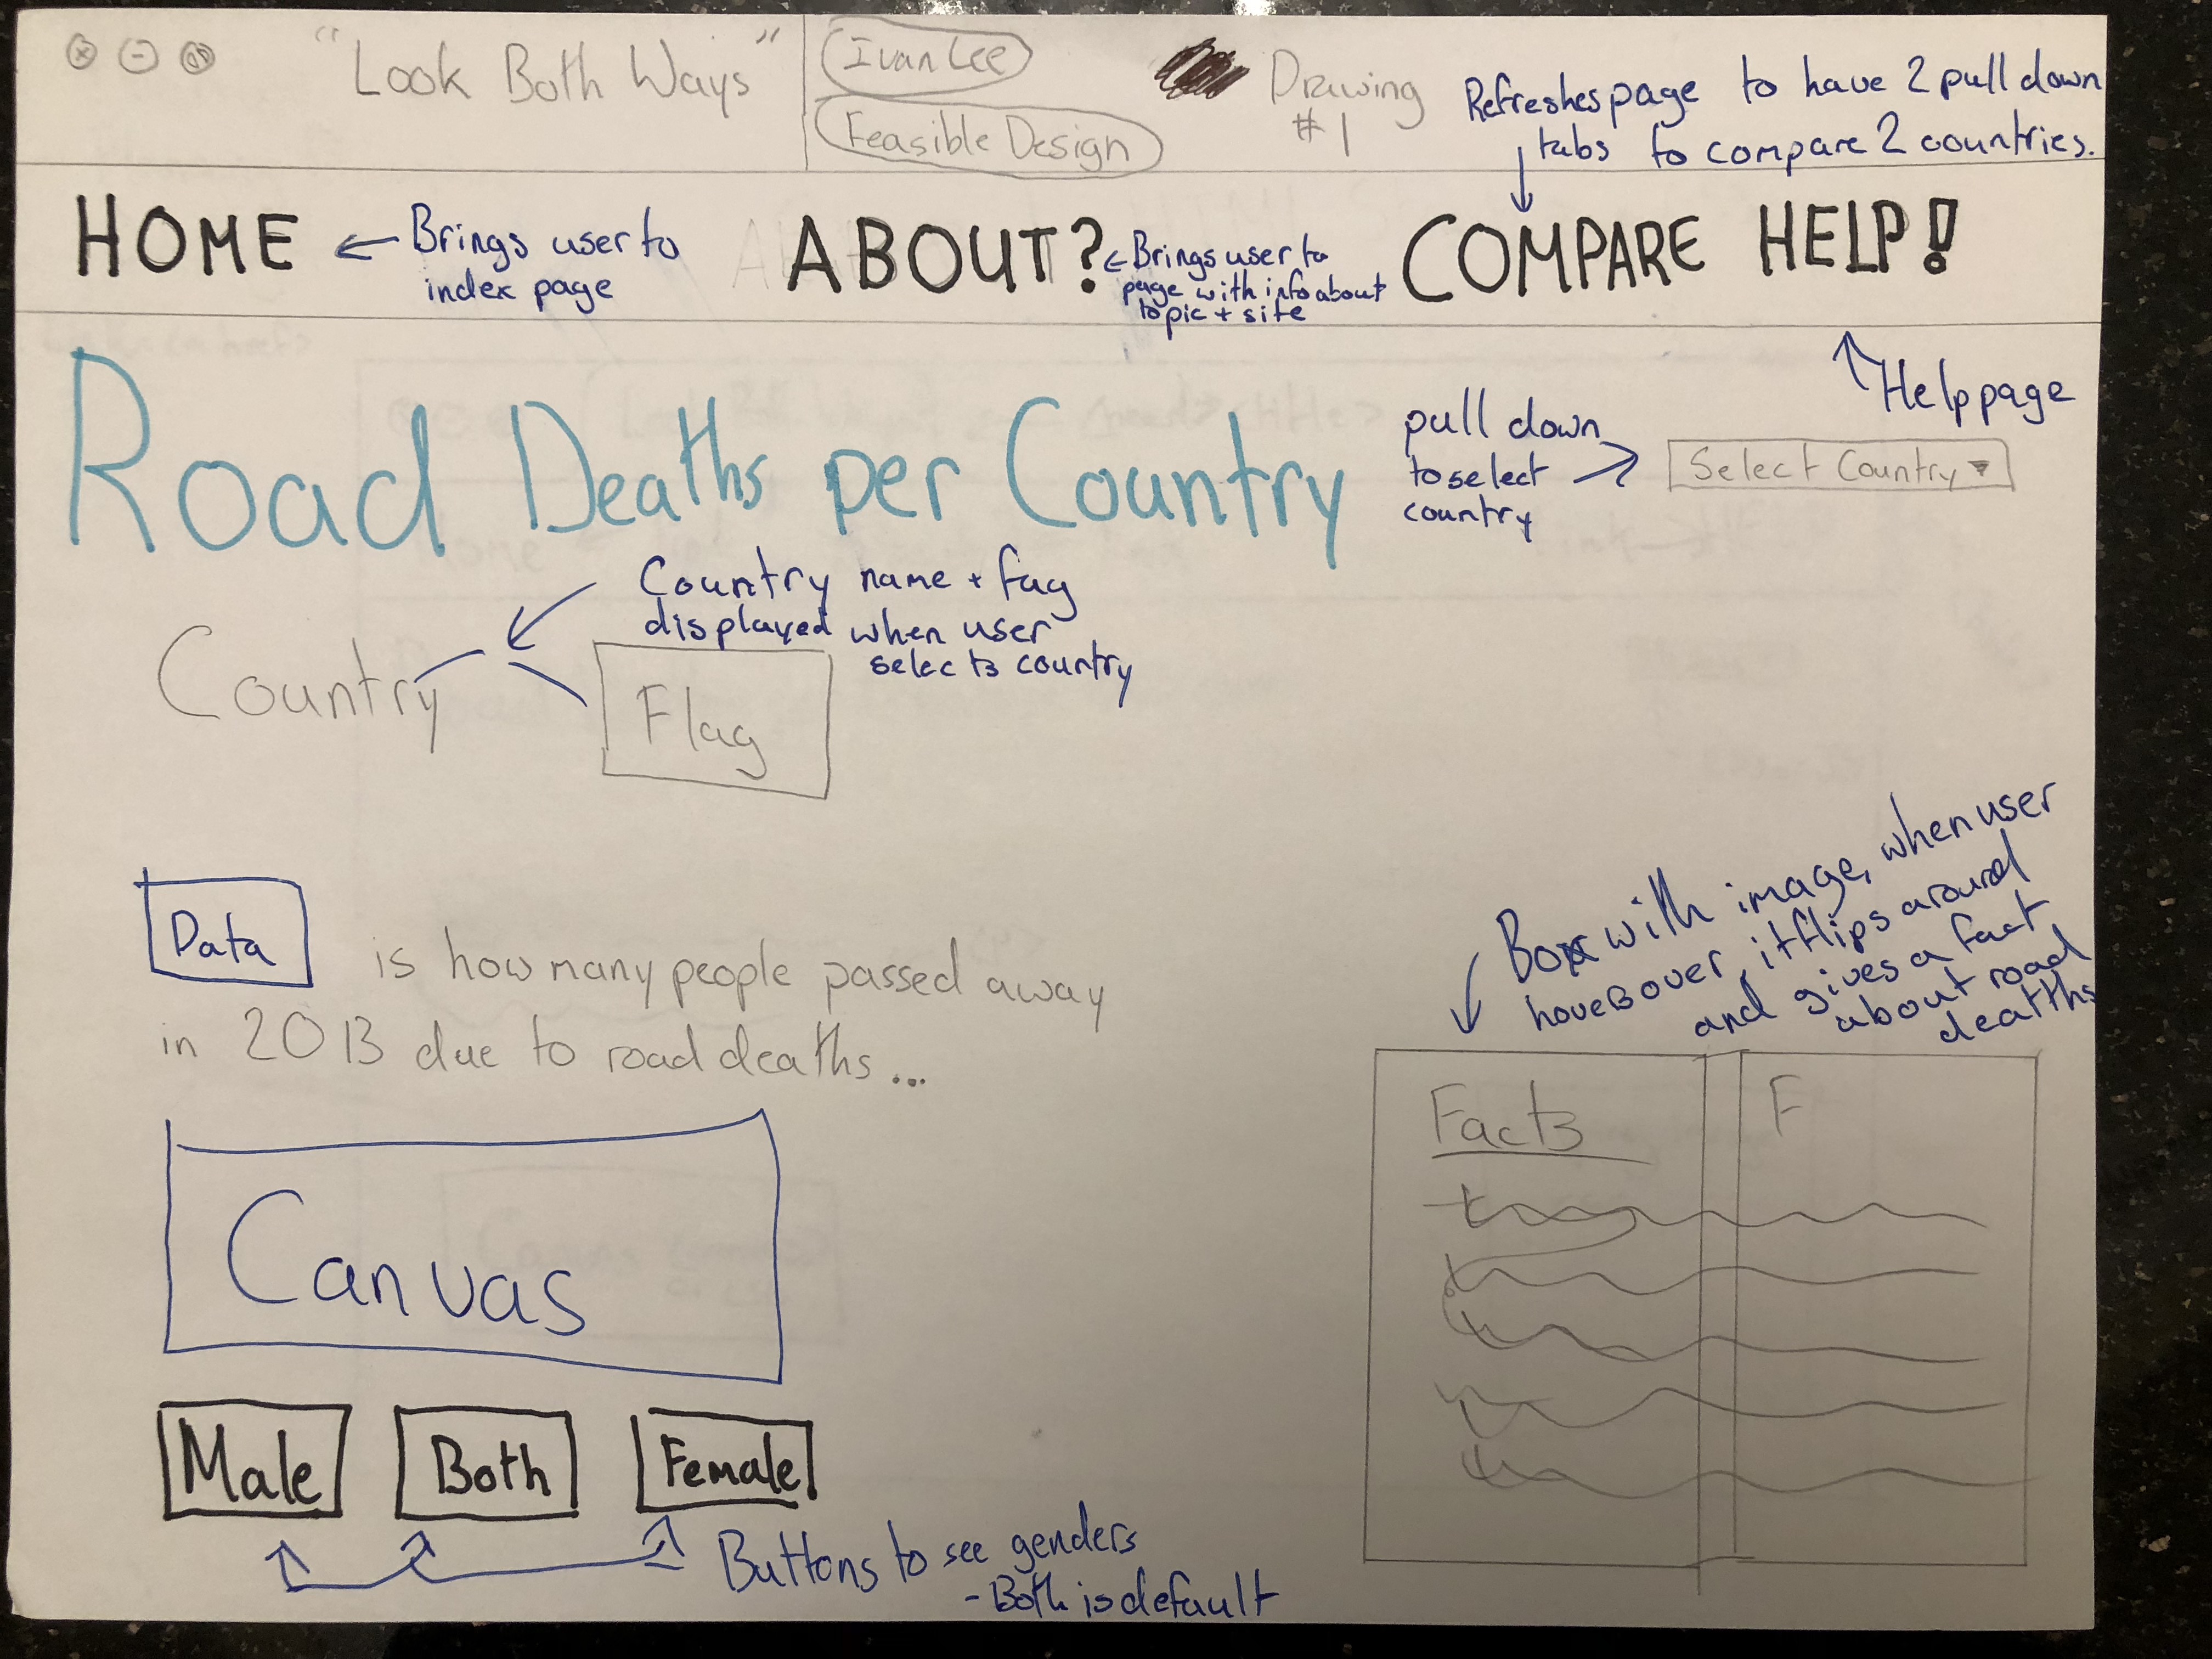 "Look Both Ways"
Ivan Lee
Feasible Design
Drawing
#1
Refreshes page to have 2 pull down
tabs to compare 2 countries.
HOME
← Brings user to
index page
ABOUT?
← Brings user to
page with info about
topic + site
COMPARE
HELP!
Help page
Road Deaths per Country
pull down
to select →
country
Select Country ▼
Country
Flag
Country name + flag
displayed when user
selects country
Data is how many people passed away
in 2013 due to road deaths...
Canvas
Male
Both
Female
Buttons to see genders
- Both is default
Box with image, when user
hovers over it flips around
and gives a fact
about road
deaths
Facts
F